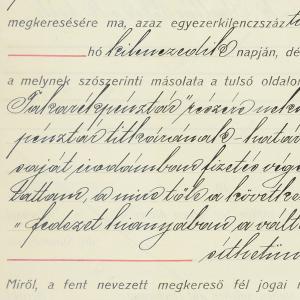 megkeresésére ma, azaz egyezerkilencszáz
hó kilenczedik napján, dé
a melynek szószerinti másolata a tulsó oldalon
Takarékpénztár" részére
pénztár titkárának - határ
saját irodámban fizetés vége
tattam, a mire tőle a követke
"fedezet hiányában a vált
Miről, a fent nevezett megkereső fél jogai